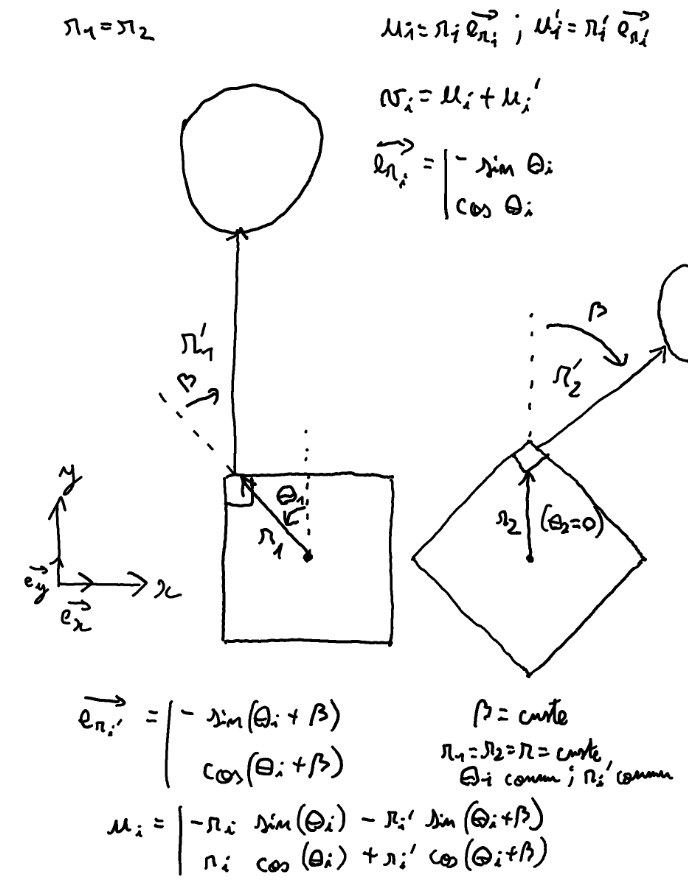 r₁=r₂
uᵢ=rᵢ e⃗rᵢ ; uᵢ'=rᵢ' e⃗rᵢ'
vᵢ=uᵢ+uᵢ'
e⃗rᵢ = | - sin θᵢ
cos θᵢ
β
r₁'
r₂'
β
y
θ₁
r₁
r₂ (θ₂=0)
e⃗y
x
e⃗x
e⃗rᵢ' = | - sin(θᵢ + β)
cos(θᵢ+β)
β = custe
r₁=r₂=r=custe
θᵢ connu ; rᵢ' connu
uᵢ = | -rᵢ sin(θᵢ) - rᵢ' sin(θᵢ+β)
rᵢ cos(θᵢ) + rᵢ' cos(θᵢ+β)